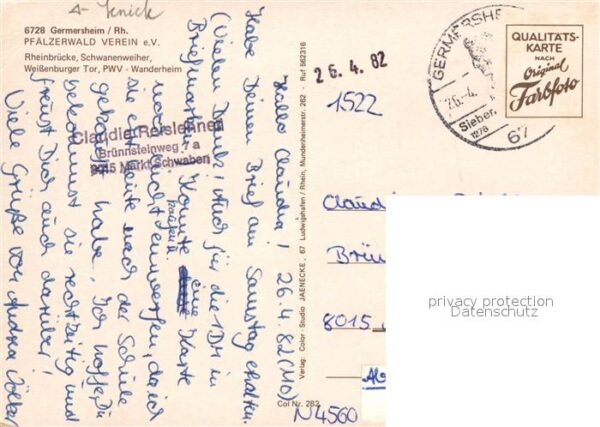 4- Knick
6728 Germersheim / Rh.
PFÄLZERWALD VEREIN e.V.
Rheinbrücke, Schwanenweiher,
Weißenburger Tor, PWV - Wanderheim
Claudia
Brünnsteinweg 7a
8015 Markt Schwaben
Hallo Claudia! 26.4.82 (MO)
Habe Deinen Brief am Samstag erhalten.
(Vielen Dank! Auch für die 1DM in
Briefmarken. Konnte eine Karte
kaufen
noch nicht einwerfen, da ich
sie erst heute nach der Schule
gekauft habe. Ich hoffe, Du
bekommst sie rechtzeitig und
freust Dich auch darüber!
Viele Grüße von Andrea
Verlag: Color-Studio JAENECKE, 67 Ludwigshafen / Rhein, Mundenheimerstr. 262 - Ruf 562316
Col Nr. 282
26.4.82
1522
GERMERSHE
26.-4.
67
QUALITÄTS-
KARTE
NACH
Original
Farbfoto
Claudi
Brün
8015
N4560
privacy protection
Datenschutz